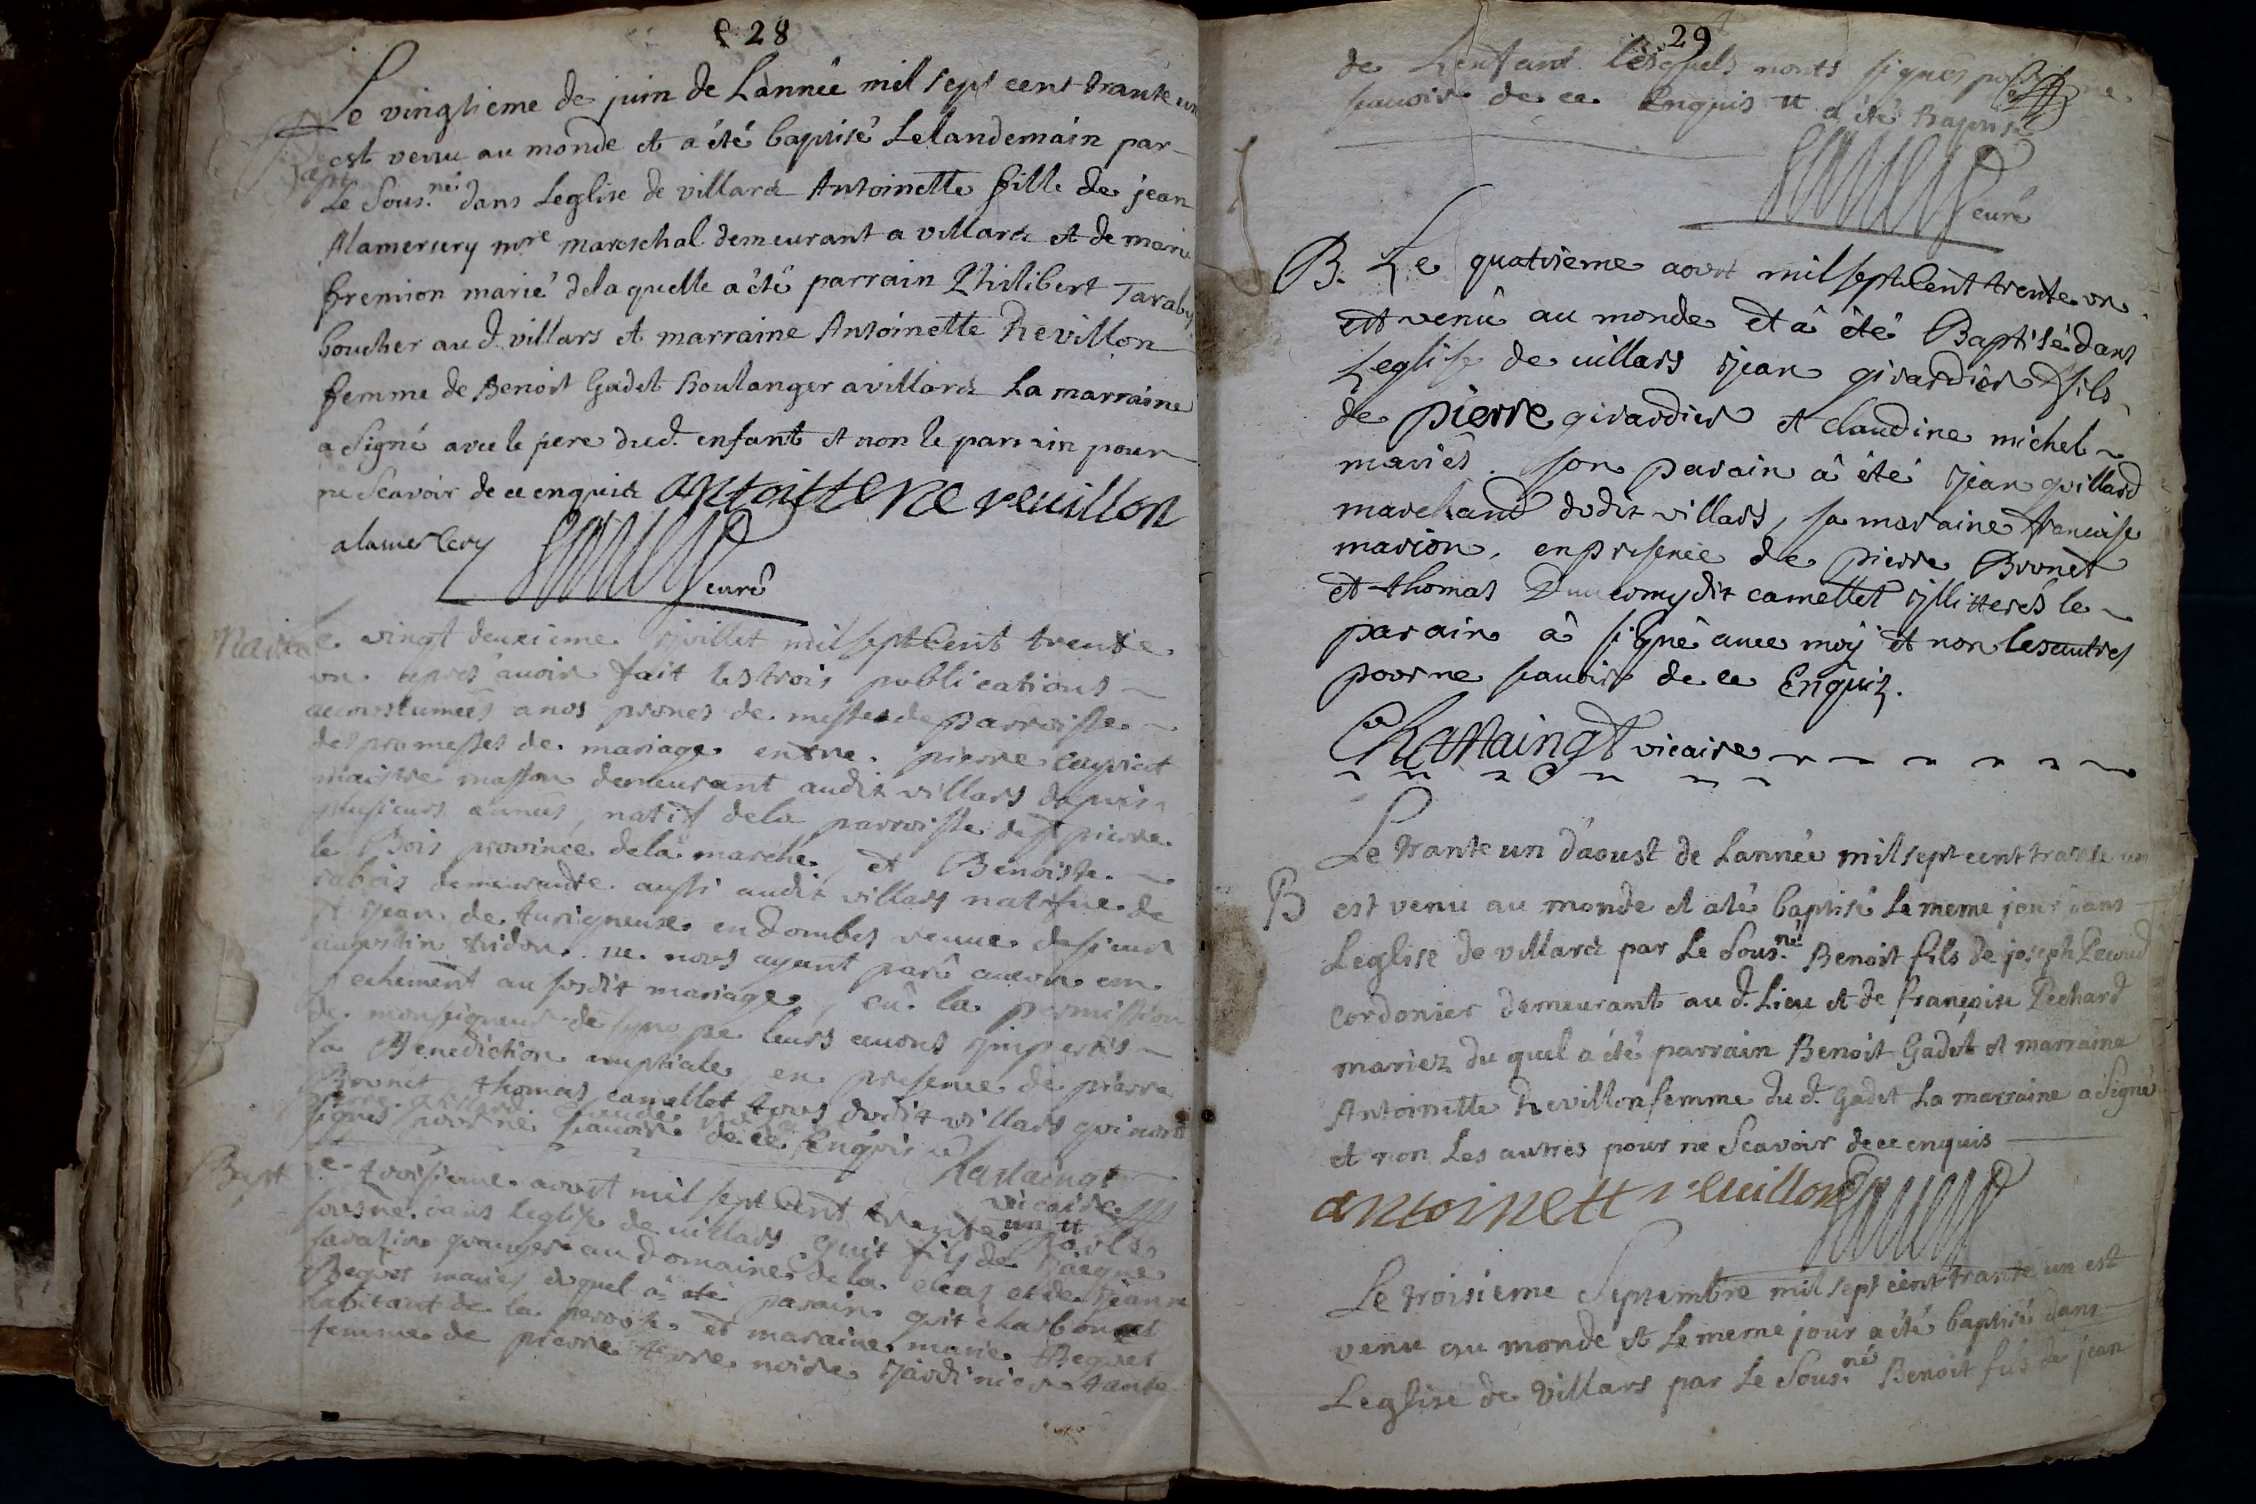 28
Le vingtieme de juin de Lannée mil sept cent trante un
est venu au monde et a été baptisé Lelandemain par
Le Sous.né dans Leglise de villard Antoinette fille de jean
Alamercery mre mareschal demeurant a villard et de marie
fremion marié dela quelle a été parrain Philibert Taraby
boucher au d. villars et marraine Antoinette Revillon
femme de Benoit Gadet Boulanger a villard La marraine
a Signé avec le pere dud. enfant et non le parrain pour
ne Scavoir de ce enquis antoittene reuillon
alamercery curé
Le vingt deuxieme juillet mil sept Cent trente
un apres avoir fait les trois publications
accoustumées a nos prones de messes de parroisse
des promesses de mariage entre pierre
maistre masson demeurant audit villars depuis
plusieurs années, natif dela parroisse de St pierre
le Bois province dela marche, et Benoiste
rabois demeurante aussi audit villars native de
St jean de turigneuse en dombes veuve de sieur
augustin tridon ne nous ayant parû aucun em
pechement au susdit mariage, eû la permission
de monseigneur de leurs avons imperti
la Benediction nuptiale en presence de pierre
Brunet thomas camellet tous dudit villars qui nont
signés pour ne scavoir de ce Enquis
Chastaingt
vicaire
Bapt
Le troisieme aoust mil sept Cent trente un
sousné dans leglise de villars guit fils de Jacque
savatin granger au domaine dela et de jeanne
Bequet mariés duquel â eté parain guit charbonet
habitant de la et maraine marie Bequet
femme de pierre terre noire jardinier tante
29
de Lenfant lesquels nonts signés pour ne
scavoir de ce Enquis a été Baptisé
curé
B. Le quatrieme aoust mil sept Cent trente un
est venû au monde et â été Baptisé dans
Leglise de villars jean girardier fils
de pierre girardier et claudine michel
mariés. son parain â été jean guillard
marchand dudit villars, sa maraine francoise
marion, en presence de pierre Brunet
et thomas dit camellet illitterés le
parain â signé avec moy et non les autres
pour ne scavoir de ce Enquiz.
Chastaingt vicaire
Le trante un daoust de Lannée mil sept cent trante un
B est venu au monde et a été baptisé Le meme jour dans
Leglise de villard par Le Sous.né Benoit fils de joseph Pecoud
Cordonier demeurant au d. Lieu et de françoise Pechard
mariez du quel a été parrain Benoit Gadet et marraine
Antoinette Revillon femme du d. Gadet La marraine a Signé
et non Les autres pour ne Scavoir de ce enquis
antoinett reuillon
Le troisieme Septembre mil sept cent trante un est
venu au monde et Le meme jour a été baptisé dans
Leglise de Villars par Le Sous.né Benoit fils de jean